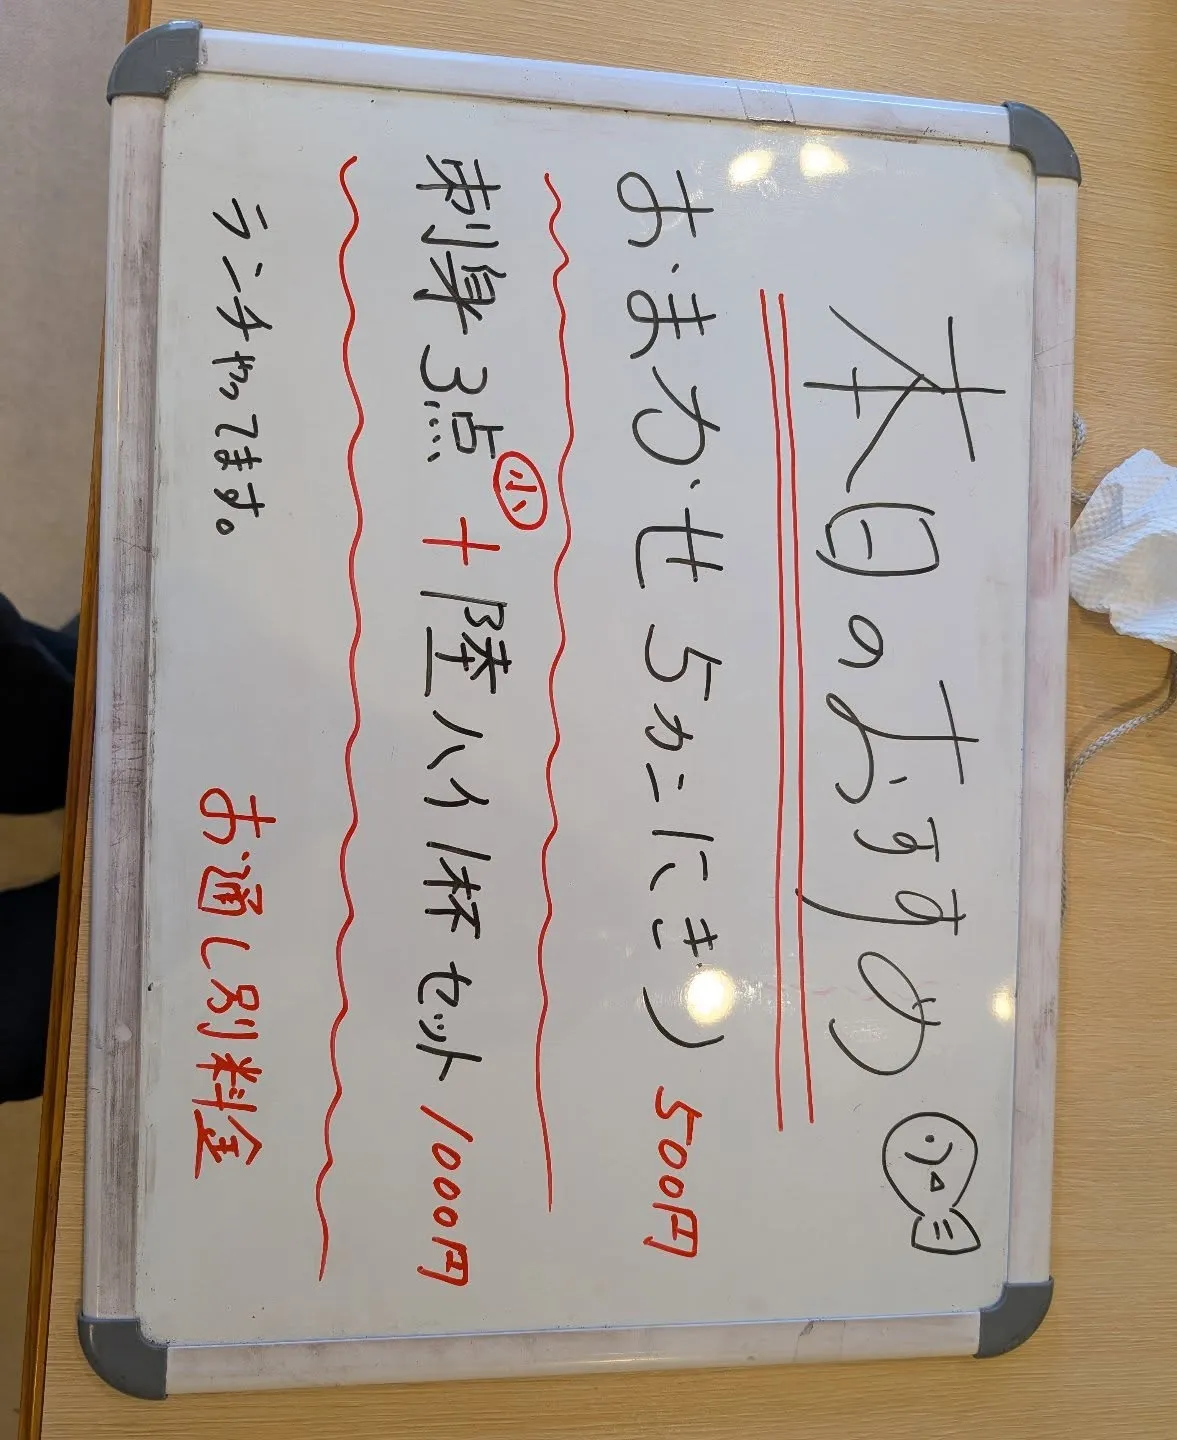 本日のおすすめ
おまかせ5カンにぎり 500円
刺身3点㊙小 + 陸ハイ1杯セット 1000円
ランチやってます。
お通し別料金